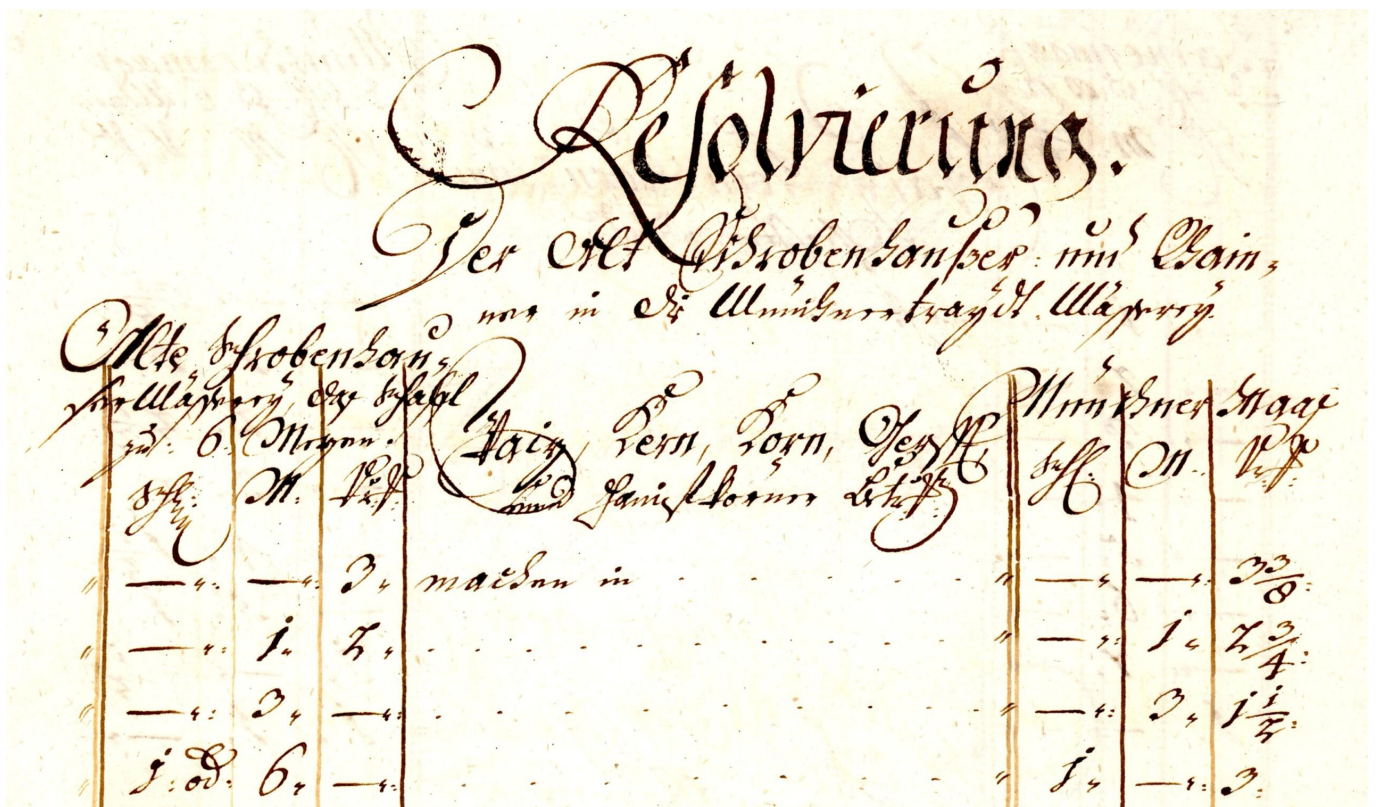 Resolvierung.
Der Alt Schrobenhaußer: und Rain,
ner in die Münchnertraydt Mässerey.
Alte Schrobenhau,
ser Mässerey, das Schäfl
zu: 6. Mezen.
Schl: M: Vrt:
Waiz, Kern, Korn, Gersst,
und Hanifkörner Betrf:
Münchner Maas
Schl: M: Vrt:
" — ": — ": 3 " machen in . . . . . . " — " — ": 3 3/8:
" — ": 1 " 2 " . . . . . . . . . " — ": 1 " 2 3/4:
" — ": 3 " — ": . . . . . . . . . " — ": 3 " 1 1/2:
" 1: od: 6 " — ": . . . . . . . . " 1 " — ": 3: